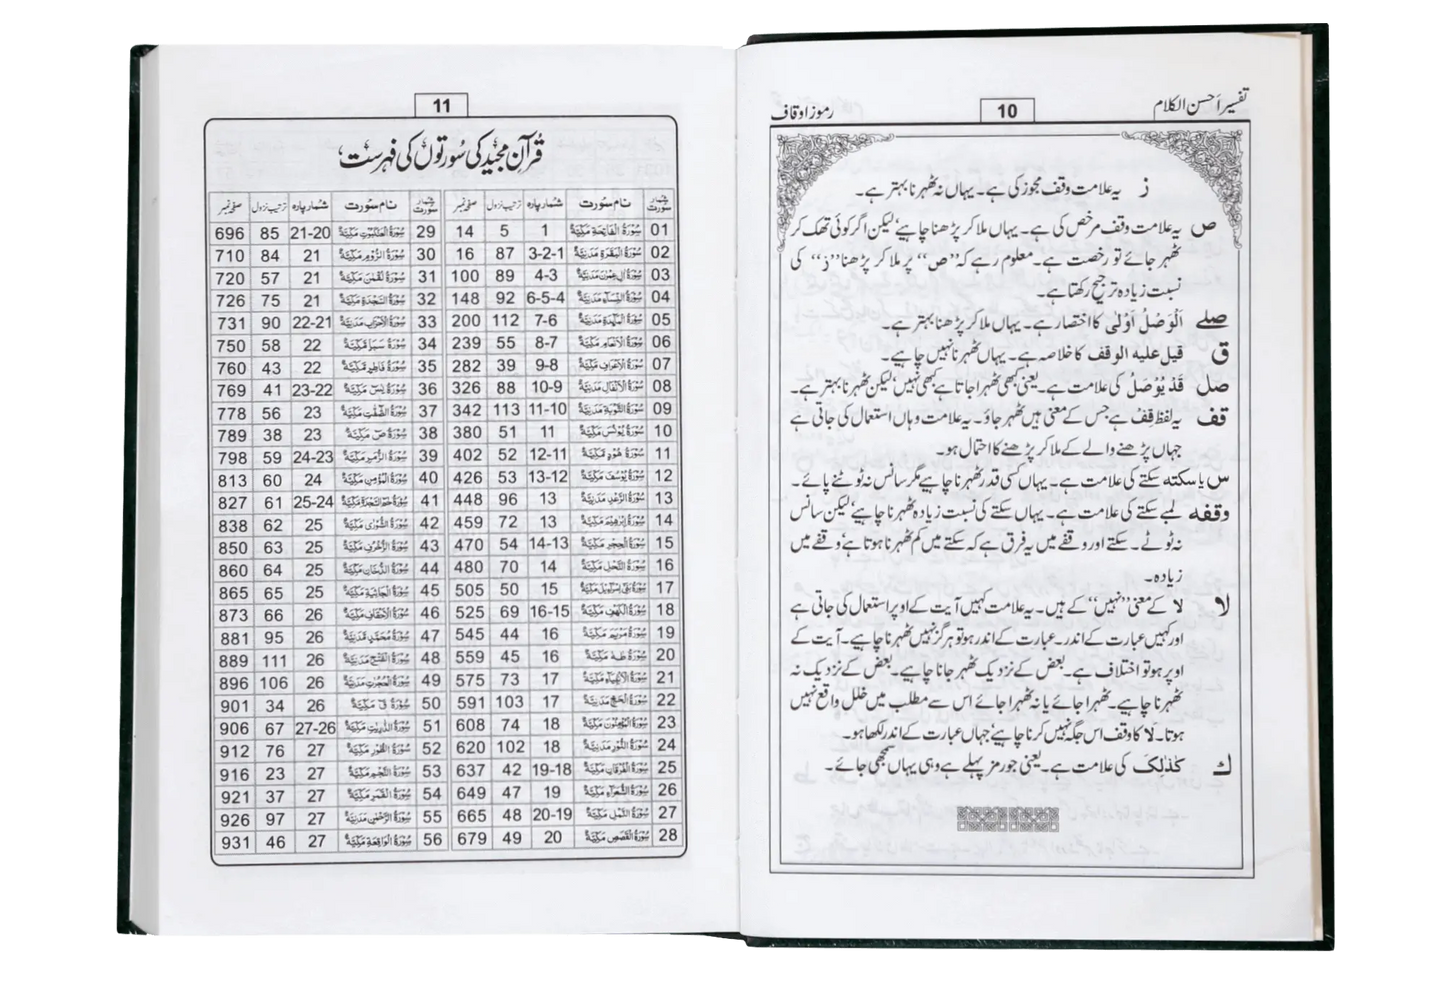 تفسیر احسن الکلام
10
رموز اوقاف
ز یہ علامت وقف مجوز کی ہے۔ یہاں نہ ٹھہرنا بہتر ہے۔
ص یہ علامت وقف مرخص کی ہے۔ یہاں ملا کر پڑھنا چاہیے لیکن اگر کوئی تھک کر
ٹھہر جائے تو رخصت ہے۔ معلوم رہے کہ ”ص“ پر ملا کر پڑھنا ”ز“ کی
نسبت زیادہ ترجیح رکھتا ہے۔
صلے اَلْوَصْلُ اَوْلٰی کا اختصار ہے۔ یہاں ملا کر پڑھنا بہتر ہے۔
ق قیل علیه الوقف کا خلاصہ ہے۔ یہاں ٹھہرنا نہیں چاہیے۔
صل قَدْ یُوْصَلُ کی علامت ہے۔ یعنی کبھی ٹھہرا جاتا ہے کبھی نہیں، لیکن ٹھہرنا بہتر ہے۔
قف یہ لفظ قِفْ ہے جس کے معنی ہیں ٹھہر جاؤ۔ یہ علامت وہاں استعمال کی جاتی ہے
جہاں پڑھنے والے کے ملا کر پڑھنے کا احتمال ہو۔
س یا سکتہ سکتے کی علامت ہے۔ یہاں کسی قدر ٹھہرنا چاہیے مگر سانس نہ ٹوٹنے پائے۔
وقفه لمبے سکتے کی علامت ہے۔ یہاں سکتے کی نسبت زیادہ ٹھہرنا چاہیے، لیکن سانس
نہ ٹوٹے۔ سکتے اور وقفے میں یہ فرق ہے کہ سکتے میں کم ٹھہرنا ہوتا ہے، وقفے میں
زیادہ۔
لا لا کے معنی ”نہیں“ کے ہیں۔ یہ علامت کہیں آیت کے اوپر استعمال کی جاتی ہے
اور کہیں عبارت کے اندر۔ عبارت کے اندر ہو تو ہرگز نہیں ٹھہرنا چاہیے۔ آیت کے
اوپر ہو تو اختلاف ہے۔ بعض کے نزدیک ٹھہر جانا چاہیے۔ بعض کے نزدیک نہ
ٹھہرنا چاہیے۔ ٹھہرا جائے یا نہ ٹھہرا جائے اس سے مطلب میں خلل واقع نہیں
ہوتا۔ لَا کا وقف اس جگہ نہیں کرنا چاہیے جہاں عبارت کے اندر لکھا ہو۔
ك کَذٰلِکَ کی علامت ہے۔ یعنی جو رمز پہلے ہے وہی یہاں سمجھی جائے۔
11
قُرآن مجید کی سُورتوں کی فہرست
شمار سورت نام سُورت شمار پارہ ترتیب نزول صفحہ نمبر شمار سورت نام سورت شمار پارہ ترتیب نزول صفحہ نمبر
01 سُورَةُ الْفَاتِحَةِ مَكِّيَّةٌ 1 5 14 29 سُورَةُ الْعَنْكَبُوْتِ مَكِّيَّةٌ 21-20 85 696
02 سُورَةُ الْبَقَرَةِ مَدَنِيَّةٌ 3-2-1 87 16 30 سُورَةُ الرُّوْمِ مَكِّيَّةٌ 21 84 710
03 سُورَةُ اٰلِ عِمْرٰنَ مَدَنِيَّةٌ 4-3 89 100 31 سُورَةُ لُقْمٰنَ مَكِّيَّةٌ 21 57 720
04 سُورَةُ النِّسَآءِ مَدَنِيَّةٌ 6-5-4 92 148 32 سُورَةُ السَّجْدَةِ مَكِّيَّةٌ 21 75 726
05 سُورَةُ الْمَآئِدَةِ مَدَنِيَّةٌ 7-6 112 200 33 سُورَةُ الْاَحْزَابِ مَدَنِيَّةٌ 22-21 90 731
06 سُورَةُ الْاَنْعَامِ مَكِّيَّةٌ 8-7 55 239 34 سُورَةُ سَبَاٍ مَكِّيَّةٌ 22 58 750
07 سُورَةُ الْاَعْرَافِ مَكِّيَّةٌ 9-8 39 282 35 سُورَةُ فَاطِرٍ مَكِّيَّةٌ 22 43 760
08 سُورَةُ الْاَنْفَالِ مَدَنِيَّةٌ 10-9 88 326 36 سُورَةُ يٰسٓ مَكِّيَّةٌ 23-22 41 769
09 سُورَةُ التَّوْبَةِ مَدَنِيَّةٌ 11-10 113 342 37 سُورَةُ الصّٰٓفّٰتِ مَكِّيَّةٌ 23 56 778
10 سُورَةُ يُوْنُسَ مَكِّيَّةٌ 11 51 380 38 سُورَةُ صٓ مَكِّيَّةٌ 23 38 789
11 سُورَةُ هُوْدٍ مَكِّيَّةٌ 12-11 52 402 39 سُورَةُ الزُّمَرِ مَكِّيَّةٌ 24-23 59 798
12 سُورَةُ يُوْسُفَ مَكِّيَّةٌ 13-12 53 426 40 سُورَةُ الْمُؤْمِنِ مَكِّيَّةٌ 24 60 813
13 سُورَةُ الرَّعْدِ مَدَنِيَّةٌ 13 96 448 41 سُورَةُ حٰمٓ السَّجْدَةِ مَكِّيَّةٌ 25-24 61 827
14 سُورَةُ اِبْرٰهِيْمَ مَكِّيَّةٌ 13 72 459 42 سُورَةُ الشُّوْرٰى مَكِّيَّةٌ 25 62 838
15 سُورَةُ الْحِجْرِ مَكِّيَّةٌ 14-13 54 470 43 سُورَةُ الزُّخْرُفِ مَكِّيَّةٌ 25 63 850
16 سُورَةُ النَّحْلِ مَكِّيَّةٌ 14 70 480 44 سُورَةُ الدُّخَانِ مَكِّيَّةٌ 25 64 860
17 سُورَةُ بَنِيْ اِسْرَآءِيْلَ مَكِّيَّةٌ 15 50 505 45 سُورَةُ الْجَاثِيَةِ مَكِّيَّةٌ 25 65 865
18 سُورَةُ الْكَهْفِ مَكِّيَّةٌ 16-15 69 525 46 سُورَةُ الْاَحْقَافِ مَكِّيَّةٌ 26 66 873
19 سُورَةُ مَرْيَمَ مَكِّيَّةٌ 16 44 545 47 سُورَةُ مُحَمَّدٍ مَدَنِيَّةٌ 26 95 881
20 سُورَةُ طٰهٰ مَكِّيَّةٌ 16 45 559 48 سُورَةُ الْفَتْحِ مَدَنِيَّةٌ 26 111 889
21 سُورَةُ الْاَنْبِيَآءِ مَكِّيَّةٌ 17 73 575 49 سُورَةُ الْحُجُرٰتِ مَدَنِيَّةٌ 26 106 896
22 سُورَةُ الْحَجِّ مَدَنِيَّةٌ 17 103 591 50 سُورَةُ قٓ مَكِّيَّةٌ 26 34 901
23 سُورَةُ الْمُؤْمِنُوْنَ مَكِّيَّةٌ 18 74 608 51 سُورَةُ الذّٰرِيٰتِ مَكِّيَّةٌ 27-26 67 906
24 سُورَةُ النُّوْرِ مَدَنِيَّةٌ 18 102 620 52 سُورَةُ الطُّوْرِ مَكِّيَّةٌ 27 76 912
25 سُورَةُ الْفُرْقَانِ مَكِّيَّةٌ 19-18 42 637 53 سُورَةُ النَّجْمِ مَكِّيَّةٌ 27 23 916
26 سُورَةُ الشُّعَرَآءِ مَكِّيَّةٌ 19 47 649 54 سُورَةُ الْقَمَرِ مَكِّيَّةٌ 27 37 921
27 سُورَةُ النَّمْلِ مَكِّيَّةٌ 20-19 48 665 55 سُورَةُ الرَّحْمٰنِ مَدَنِيَّةٌ 27 97 926
28 سُورَةُ الْقَصَصِ مَكِّيَّةٌ 20 49 679 56 سُورَةُ الْوَاقِعَةِ مَكِّيَّةٌ 27 46 931